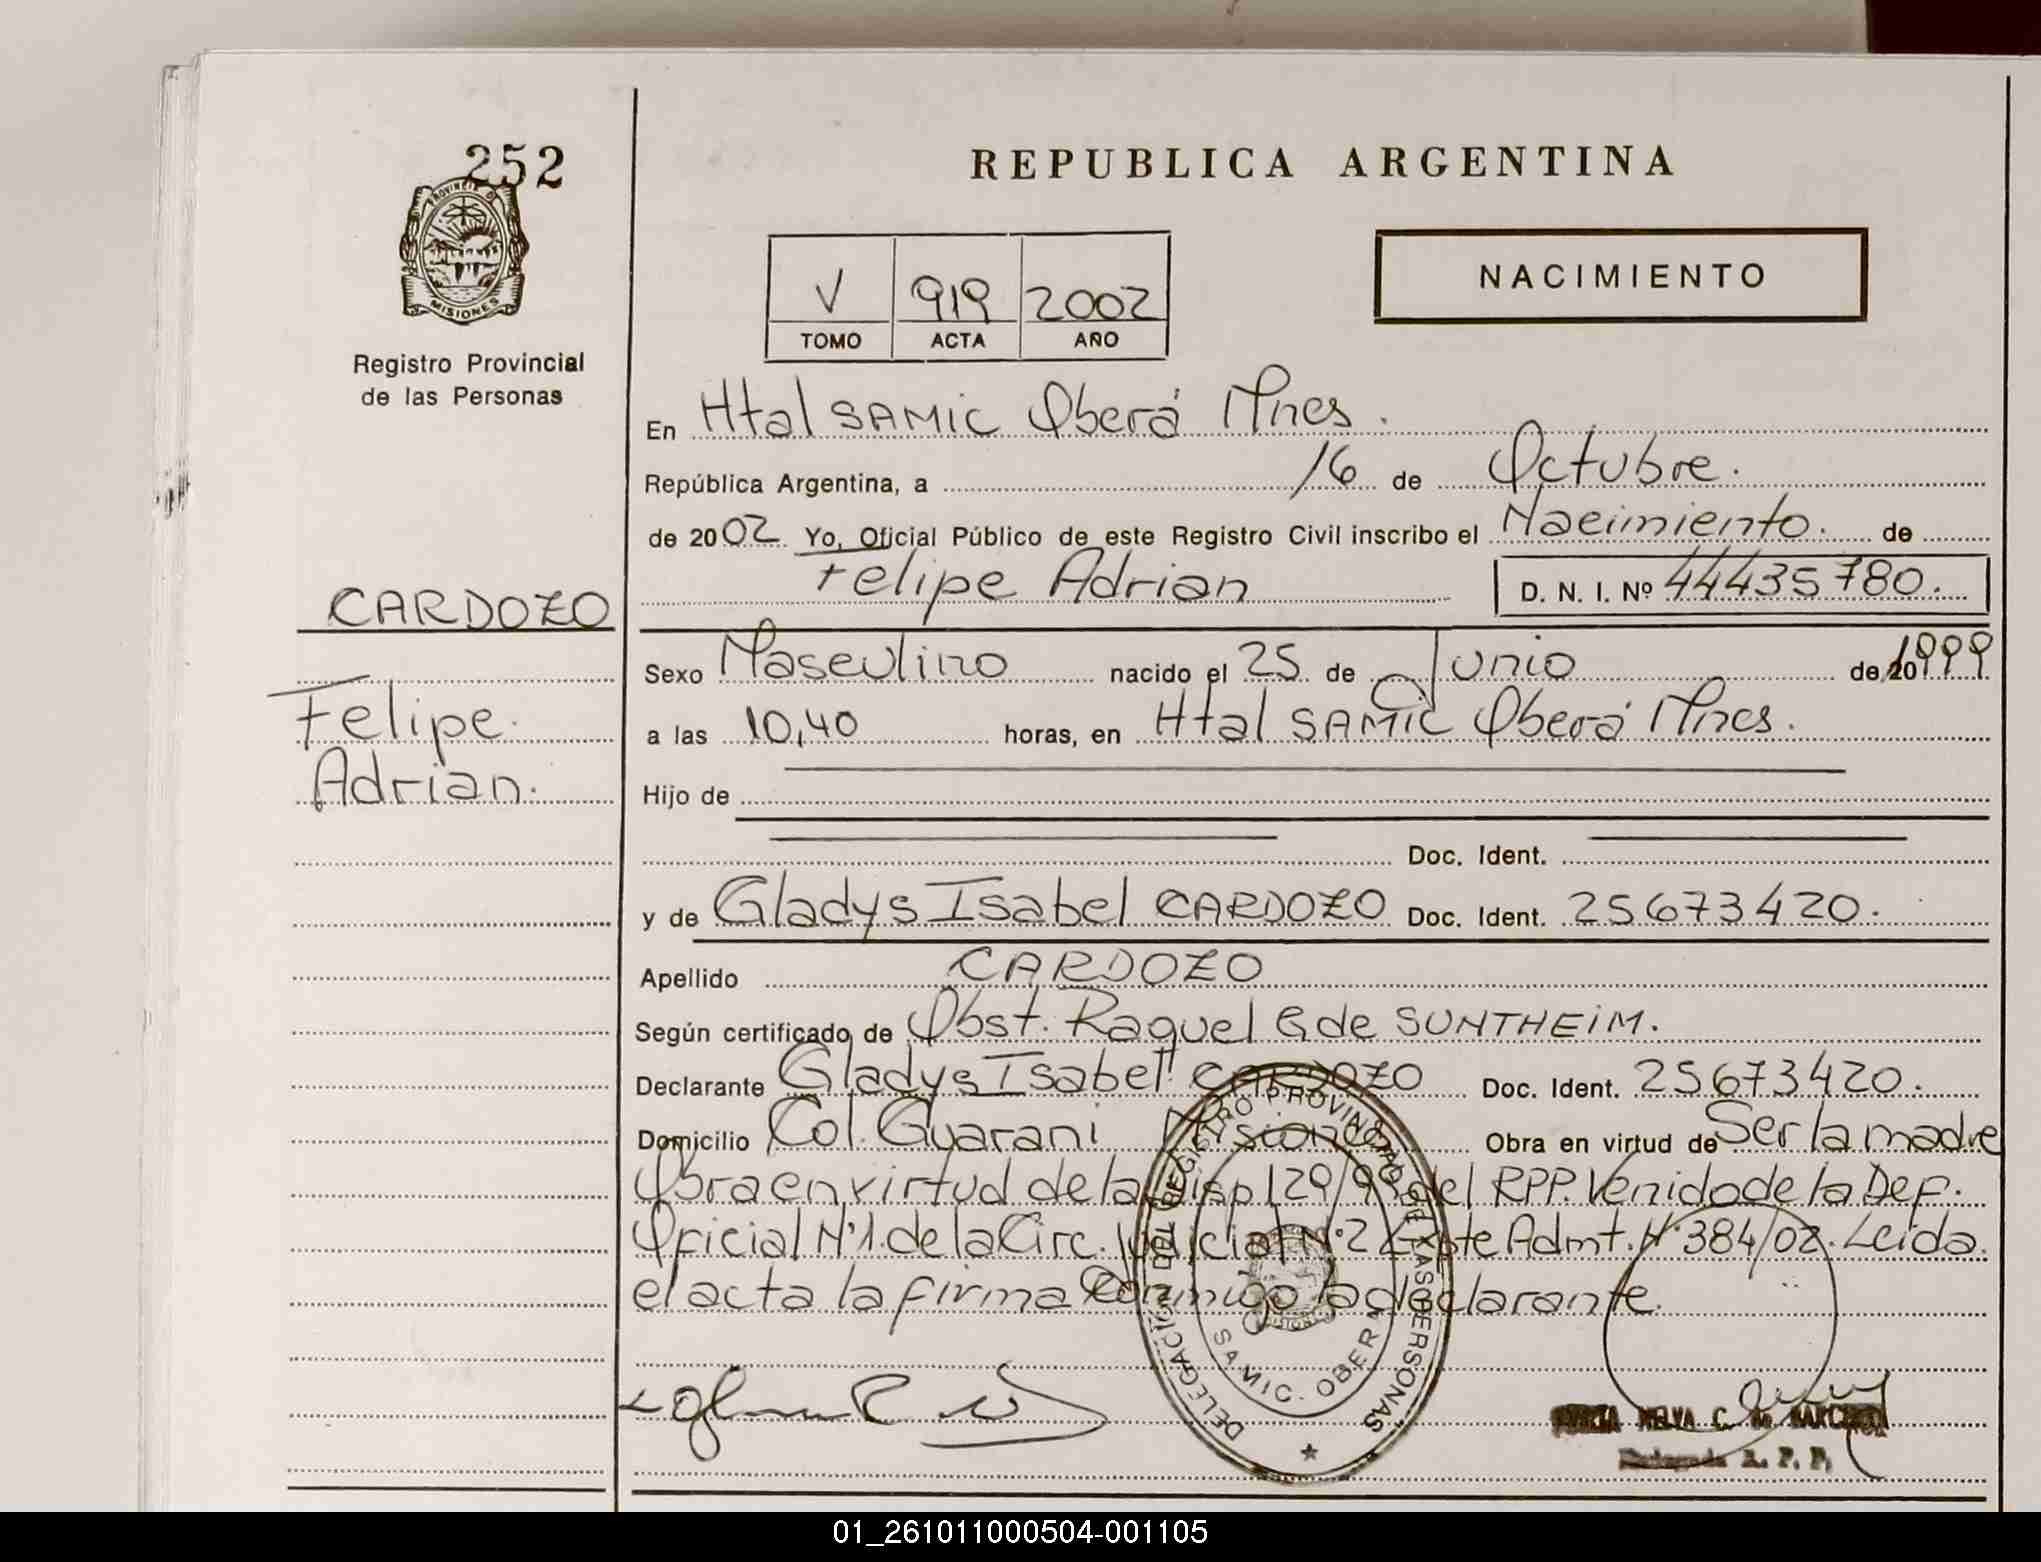 252
PROVINCIA D
MISIONES
Registro Provincial
de las Personas
REPUBLICA ARGENTINA
V 919 2002
TOMO ACTA AÑO
NACIMIENTO
En Htal SAMIC Oberá Mnes.
República Argentina, a 16 de Octubre.
de 2002 Yo, Oficial Público de este Registro Civil inscribo el Nacimiento. de
Felipe Adrian D. N. I. Nº 44435780.
CARDOZO
Felipe.
Adrian.
Sexo Masculino nacido el 25 de Junio de 20 1999
a las 10,40 horas, en Htal SAMIC Oberá Mnes.
Hijo de
Doc. Ident.
y de Gladys Isabel CARDOZO Doc. Ident. 25673420.
Apellido CARDOZO
Según certificado de Obst. Raquel G de SUNTHEIM.
Declarante Gladys Isabel CARDOZO Doc. Ident. 25673420.
Domicilio Col. Guarani Misiones Obra en virtud de Ser la madre
Obra en virtud de la Disp 120/99 del RPP. Venido de la Def.
Oficial Nº1. de la Circ. Judicial Nº2 Expte Admt. Nº 384/02. Leida
el acta la firma conmigo la declarante.
DELEGACION DEL REGISTRO PROVINCIAL DE LAS PERSONAS
SAMIC. OBERA
MISIONES
MELVA C. de
Delegada R. P. P.
01_261011000504-001105